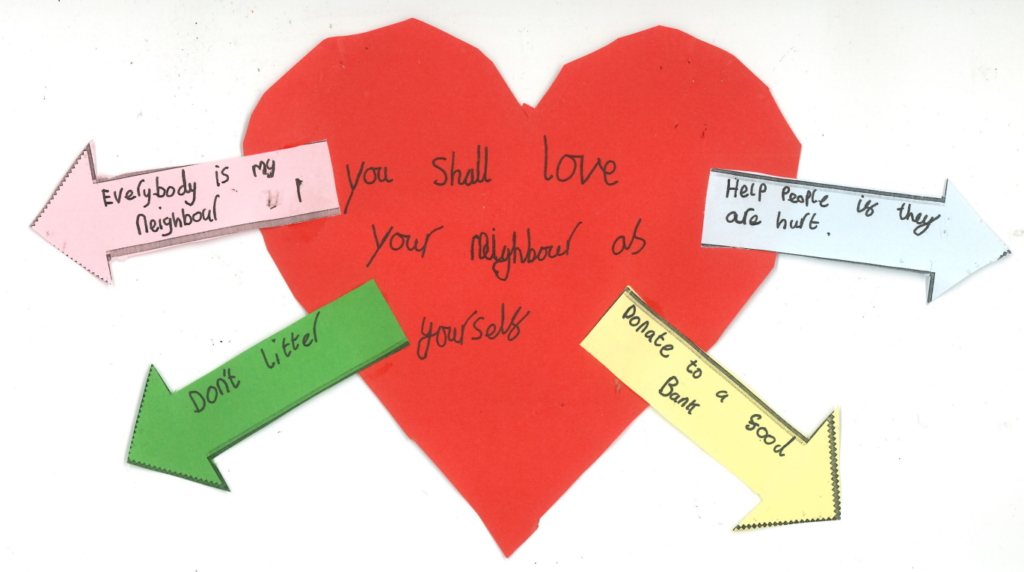 Everybody is my
neighbour
you shall love
your neighbour as
yourself
Help People if they
are hurt.
Don't litter
Donate to a food
Bank